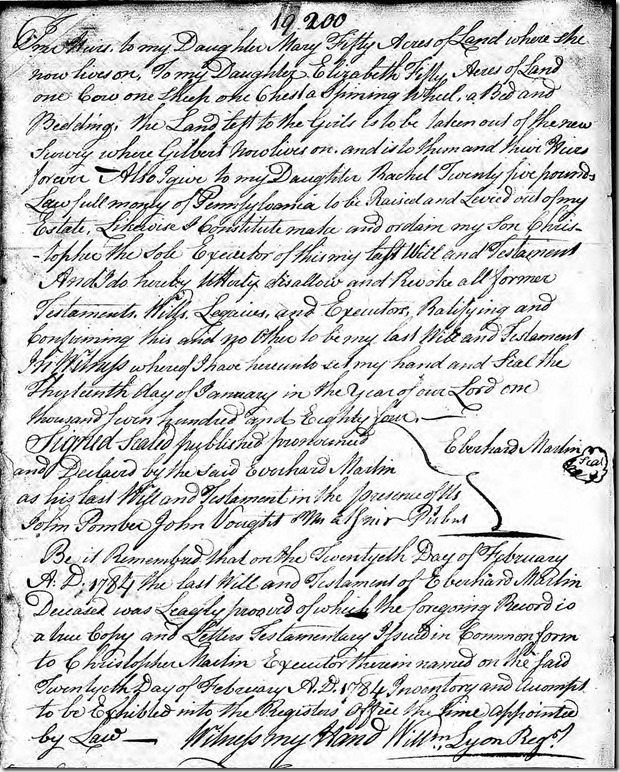 19 200
Heirs. to my Daughter Mary Fifty Acres of Land where she
now lives on, To my Daughter Elizabeth Fifty Acres of Land
one Cow one Sheep one Chest a Spinning Wheel, a Bed and
Bedding; the Land left to the Girls is to be taken out of the new
Survey where Gilbert Now lives on. and is to them and their Heirs
forever — Also I give to my Daughter Rachel Twenty five pounds
Lawfull money of Pennsylvania to be Raised and Levied out of my
Estate, Likewise I Constitute make and ordain my Son Chris-
-topher the Sole Executor of this my last Will and Testament
And I do hereby Utterly disallow and Revoke all former
Testaments. Wills, Legacies, and Executors, Ratifying and
Confirming this and no Other to be my last Will and Testament
In Witness whereof I have hereunto set my hand and Seal the
Thirteenth day of January in the Year of our Lord one
thousand Seven hundred and Eighty four. —
Signed Sealed published pronounced
Eberhard Martin Seal
and Declared by the said Everhard Martin
as his last Will and Testament in the presence of Us
John Pomber John Vought
Be it Remembred that on the Twentyeth Day of February
A.D. 1784 the last Will and Testament of Eberhard Martin
Deceased was Leagly prooved of which the foregoing Record is
a true Copy and Letters Testamentary Issued in Common form
to Christopher Martin Executor therein named on the said
Twentyeth Day of February A.D. 1784 Inventory and accompt
to be Exhibited into the Registers Office the time appointed
by Law — Witness my Hand Willm. Lyon Regr.